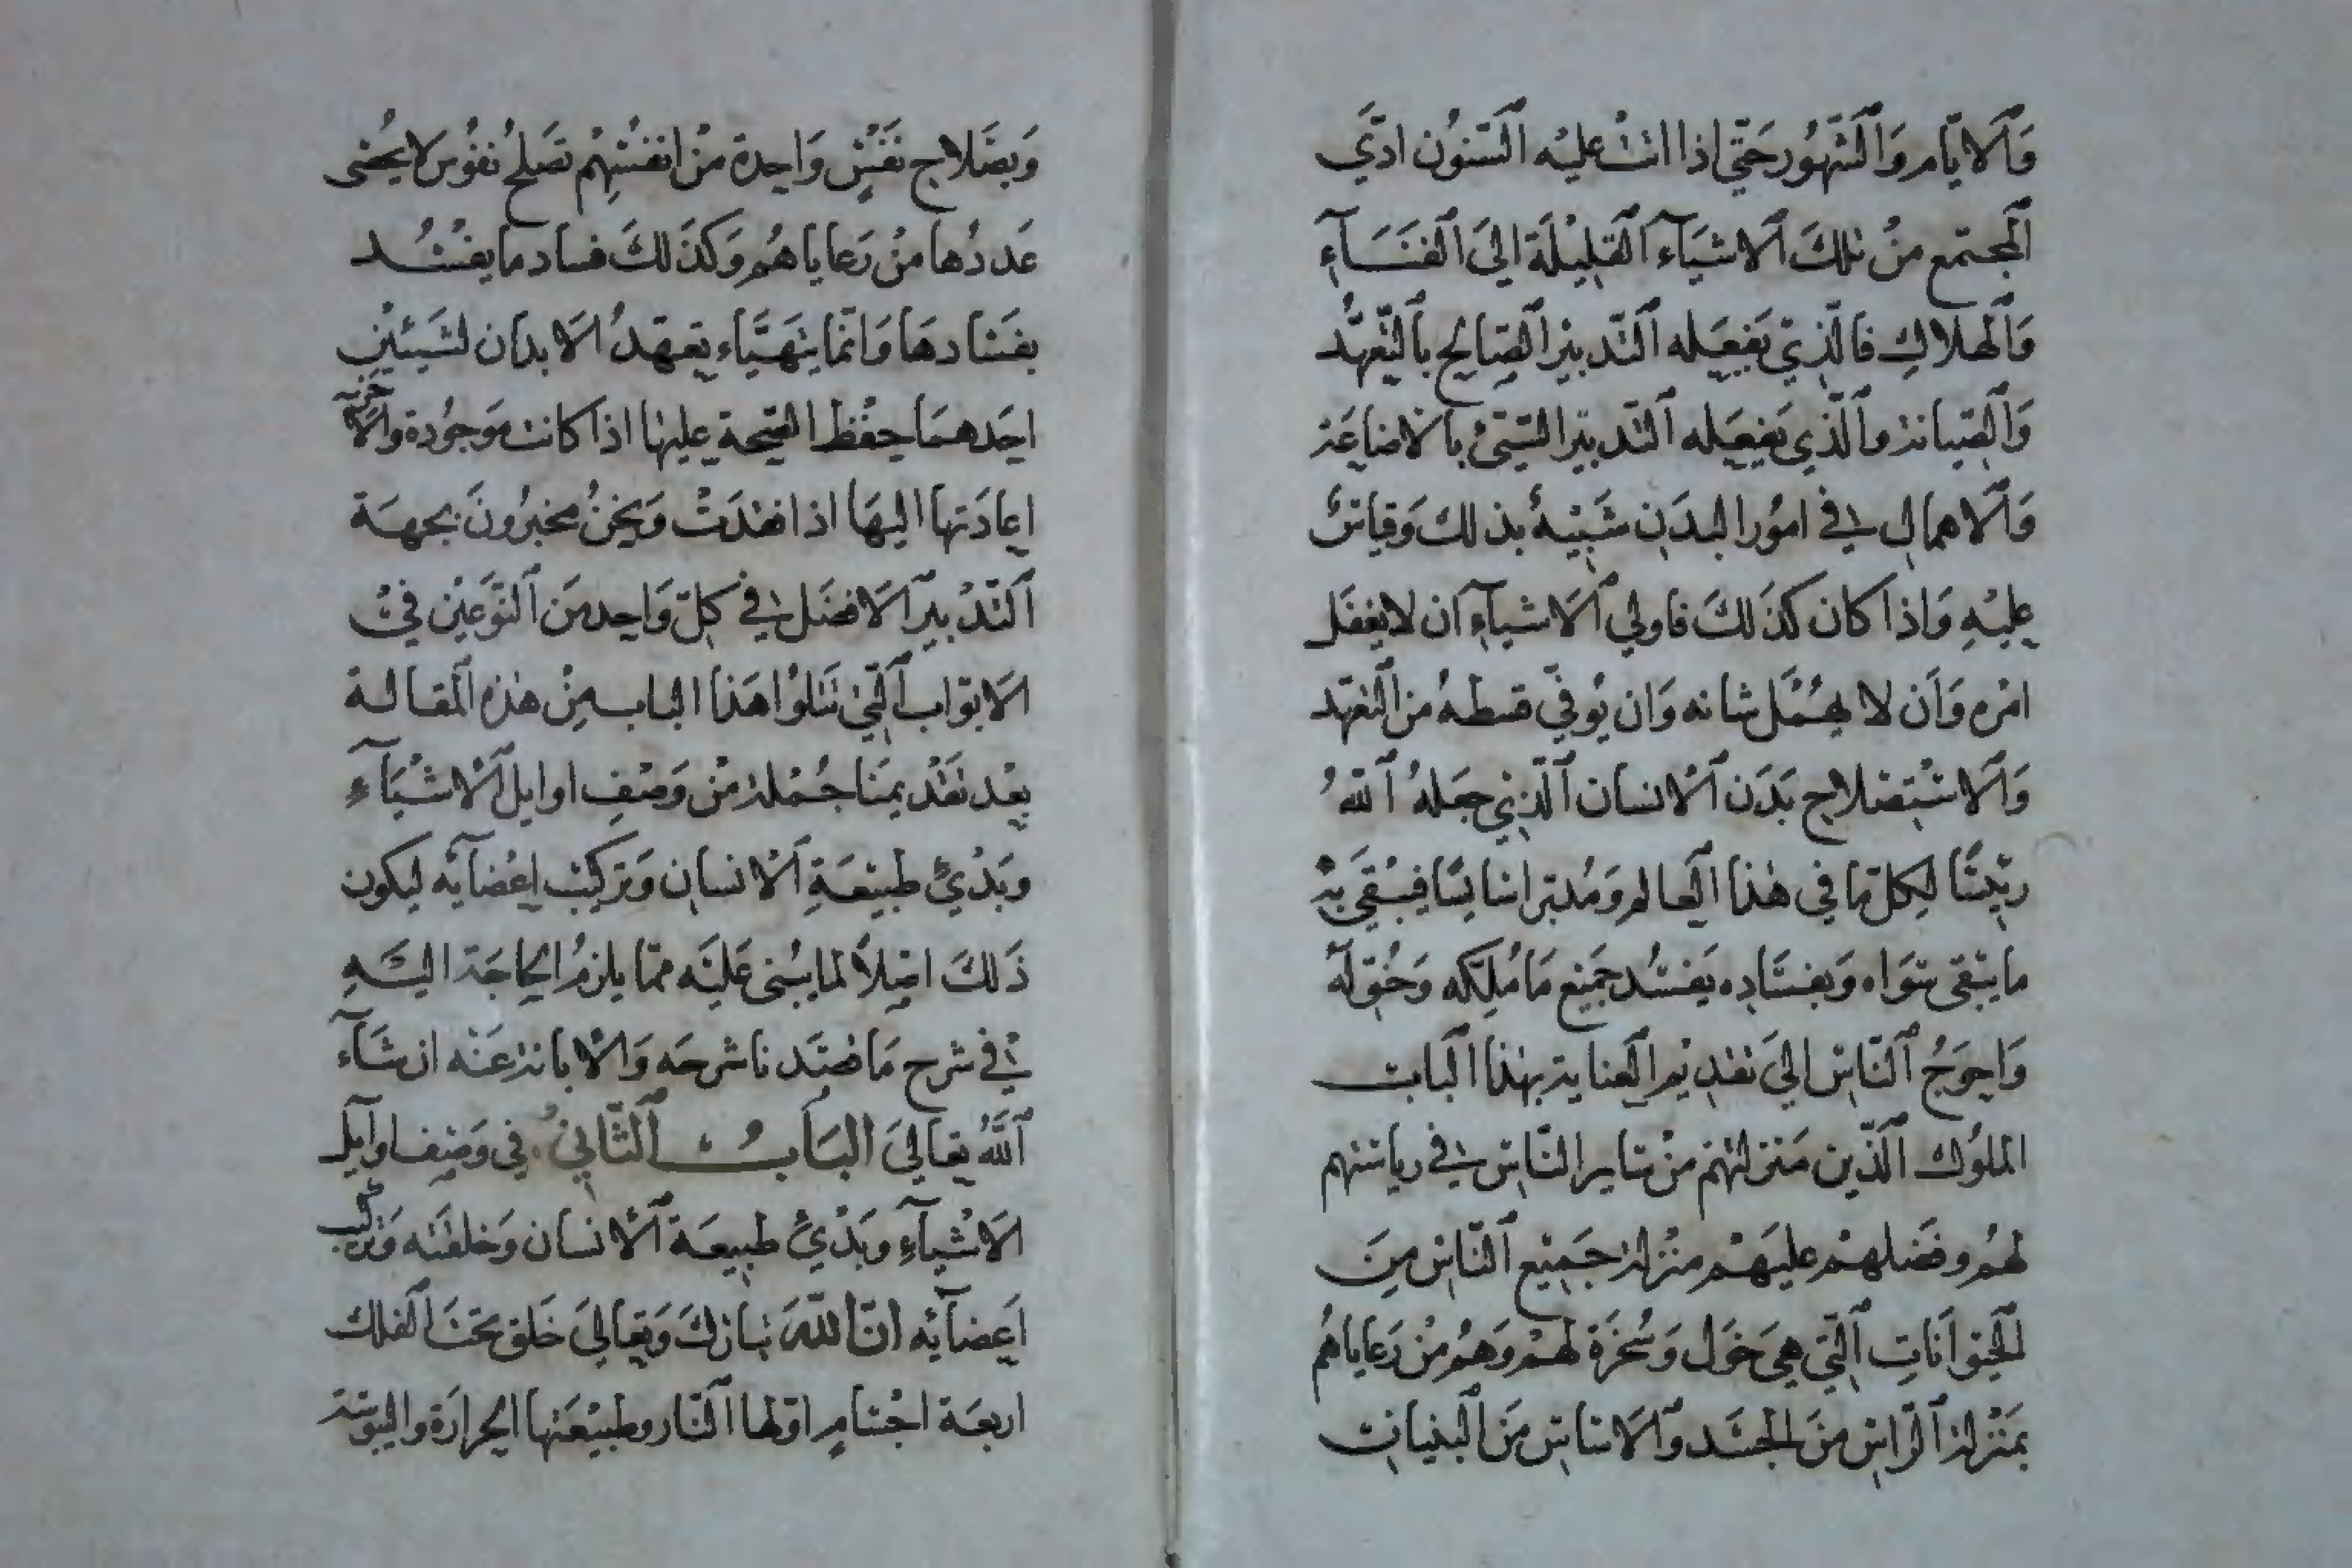 وَالايّام وَالشهُور حَتّي اذا اتت عليْه السّنوُن ادّي
المجتمع منْ تلكَ الاشيَآء القليْلَة اليَ الفَنَآءِ
وَالهلاكِ فالّذِيْ يَفعَله التّدبيْر الصّالح بالتّعَهّد
وَالصّيانة والّذي يَفعَله التّدبيْر السّيّئ بالاضاعَة
وَالاهمالِ في اموُر البدَن شَبيْهٌ بذلك وَقياسٌ
عليْهِ وَاذا كان كذَلكَ فاولي الاشيآءِ ان لا يغفَل
امْره وَان لا يهُمَل شانه وَان يُوفّي قسطهُ من التعهّد
وَالاسْتصْلاح بَدَن الانسان الّذيْ جعَلهُ اللّٰهُ
رئيسًا لِكلّ ما في هٰذا العالم وَمُدبّرا سَايسًا فيبْقيَ بهْ
ما يبْقي سِوَاه وَبفسَادِه يَفسُد جميْع مَا مُلّكه وَخُوّلهُ
وَاحوَجُ النّاسْ اليَ تقديْم العناية بهٰذا الباب
الملوُك الّذين مَنزلتهُمْ منْ سَاير النّاسْ في رياستهم
لهُمْ وفضَلهمْ عليَهْم منْزلة جَميْع النّاسْ مِنَ
الحيوَانَاتِ الّتي هيَ خَوَل وَسُخرَة لهمْ وَهُمْ منْ رَعاياهُم
بمَنْزلة الرّاسْ منَ الجسَد وَالاسَاسْ منَ البنيانْ
وَبصَلاحِ نَفَسٍْ وَاحِدة منْ انفسُهِمْ تصَلحُ نفوُس لا يحُصٰي
عَددُها منْ رَعاياهُم وَكذَلكَ فساد ما يفسُد
بفسَادهَا وَانّما يتهَيَّاء تعهّدُ الابدان لشيئيْن
احَدهمَا حِفْظ الصّحة عليْها اذا كانت مَوجُودة والآخر
اعادَتها اليهَا اذا فقدَتْ وَنَحنُ مخبرُونَ بجهَة
التّدْبيْر الافضَل في كلّ وَاحِد منَ النّوَعيْن فيْ
الابوَاب الّتيْ تتلوُا هَذا الباب منْ هٰذه المقالة
بعْد تقْديمنَا جُمْلة منْ وَصْفِ اوايل الاشْيَآءِ
وبَدْئِ طبيْعَةِ الانسان وَتركيْب اعْضآئه ليكون
ذَلكَ اصْلاً لما يبُنى عَليْه ممّا يلزمُ الحاجَة اليْهِ
في شرح مَا قصَدنا شرحَه وَالابانة عَنْه ان شَآء
اللّٰهُ تعاليَ البَابُ الثّانيْ في وَصْف اوآيل
الاشْيآءِ وبَدْئِ طبيعَة الانسان وَخلقَته وَتركيب
اعضآئه انّ اللّٰهَ تبارَكَ وَتعاليَ خَلق تحتَ الفلك
اربعَة اجْسامٍ اوّلها النّار وطبيْعَتها الحرارَة واليبوُسَة